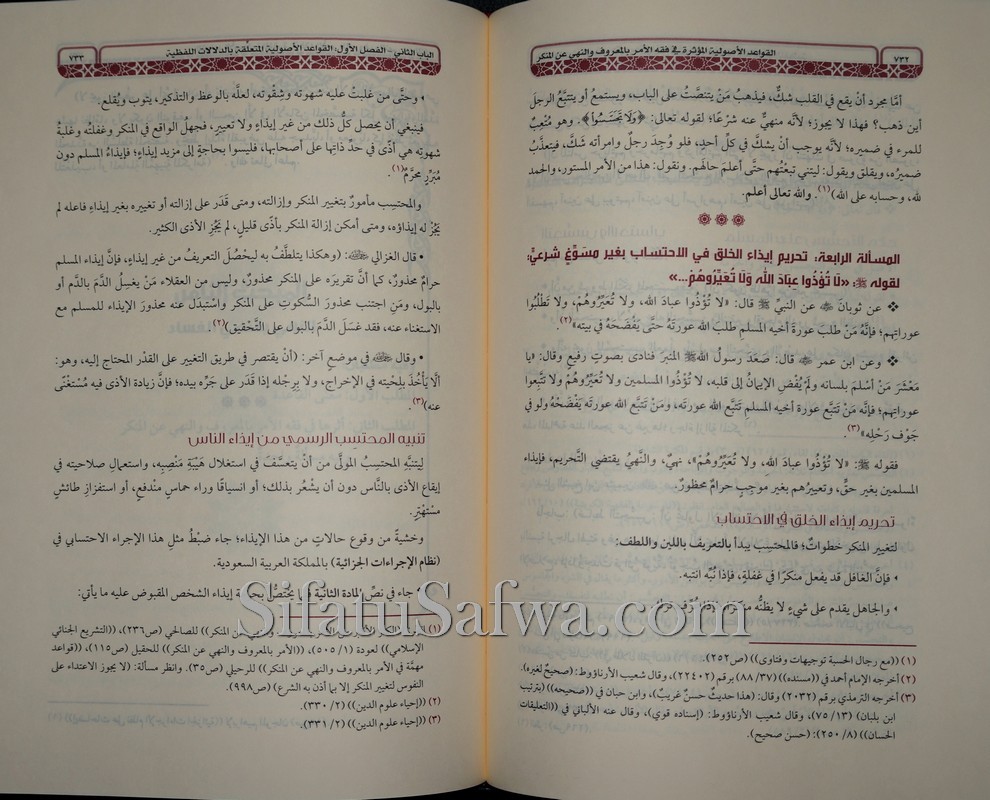 ٧٣٢
القواعد الأصولية المؤثرة في فقه الأمر بالمعروف والنهي عن المنكر
أمَّا مجرد أنْ يقع في القلب شكٌّ، فيذهبُ مَنْ يتنصَّتُ على الباب، ويستمعُ أو يتتبَّعُ الرجلَ
أين ذهب؟ فهذا لا يجوز؛ لأنَّه منهيٌّ عنه شرْعًا؛ لقوله تعالى: ﴿وَلَا تَجَسَّسُوا﴾. وهو مُتْعِبٌ
للمرء في ضميره؛ لأنَّه يوجب أنْ يشكَّ في كلِّ أحدٍ، فلو وُجِدَ رجلٌ وامرأته شكَّ، فيتعذَّبُ
ضميرُه، ويقلق ويقول: ليتني تبعْتُهم حتَّى أعلمَ حالَهم. ونقول: هذا من الأمر المستور، والحمد
لله، وحسابه على الله)(١). والله تعالى أعلم.
المسألة الرابعة: تحريم إيذاء الخلق في الاحتساب بغير مسَوِّغٍ شرعيٍّ؛
لقوله ﷺ: «لَا تُؤْذُوا عِبَادَ اللَّهِ وَلَا تُعَيِّرُوهُمْ...»
❖ عن ثوبانَ ﷺ عن النبيِّ ﷺ قال: «لا تُؤْذُوا عبادَ الله، ولا تُعَيِّرُوهُمْ، ولا تَطْلُبُوا
عوراتِهم؛ فإنَّهُ مَنْ طلبَ عورةَ أخيه المسلمِ طلبَ الله عورتَهُ حتَّى يَفْضَحَهُ في بيته»(٢).
❖ وعن ابن عمر ﷺ قال: صَعَدَ رسولُ اللهﷺ المنبرَ فنادى بصوتٍ رفيعٍ وقال: «يا
مَعْشَرَ مَنْ أسْلمَ بلسانه ولمْ يُفْضِ الإيمانُ إلى قلبه، لا تُؤْذُوا المسلمين ولا تُعَيِّرُوهُمْ ولا تتَّبِعوا
عوراتِهم؛ فإنَّه مَنْ تتبَّع عورة أخيه المسلمِ تَتَبَّع الله عورتَه، ومَنْ تَتبَّع الله عورتَه يَفْضَحْهُ ولو في
جَوْف رَحْلِه»(٣).
فقوله ﷺ: «لا تُؤْذُوا عبادَ الله، ولا تُعَيِّرُوهُمْ»، نهيٌ، والنَّهيُ يقتضي التَّحريم، فإيذاء
المسلمين بغير حقٍّ، وتعييرُهم بغير موجِبٍ حرامٌ محظورٌ.
تحريم إيذاء الخلق في الاحتساب
لتغيير المنكر خطواتٌ؛ فالمحتسِب يبدأ بالتعريف باللين واللطف:
، فإنَّ الغافل قد يفعل منكرًا في غفلةٍ، فإذا نُبِّه انتبه.
، والجاهل يقدم على شيءٍ لا يظنُّه منكرًا، فإذا
(١) ((مع رجال الحسبة توجيهات وفتاوى)) (ص٢٥٢).
(٢) أخرجه الإمام أحمد في ((مسنده)) (٣٧/ ٨٨) برقم (٢٢٤٠٢)، وقال شعيب الأرناؤوط: (صحيحٌ لغيره).
(٣) أخرجه الترمذي برقم (٢٠٣٢) وقال: (هذا حديثٌ حسنٌ غريبٌ)، وابن حبان في ((صحيحه)) (بترتيب
ابن بلبان) (١٣/ ٧٥)، وقال شعيب الأرناؤوط: (إسناده قوي)، وقال عنه الألباني في ((التعليقات
الحسان)) (٨/ ٢٥٠): (حسن صحيح).
الباب الثاني - الفصل الأول: القواعد الأصولية المتعلّقة بالدلالات اللفظية
٧٣٣
، وحتَّى من غلبتْ عليه شهوته وشِقْوته، لعلَّه بالوعظ والتذكير، يتوب ويُقلع.
فينبغي أن يحصل كلُّ ذلك من غير إيذاءٍ ولا تعييرٍ، فجهلُ الواقع في المنكر وغفلتُه وغلبةُ
شهوته هي أذًى في حدِّ ذاتِها على أصحابها، فليسوا بحاجةٍ إلى مزيد إيذاءٍ؛ فإيذاءُ المسلم دون
مُبَرِّرٍ محرَّمٌ(١).
والمحتسِب مأمورٌ بتغيير المنكر وإزالته، ومتى قدَر على إزالته أو تغييره بغير إيذاءِ فاعله لم
يَجُزْ له إيذاؤه، ومتى أمكن إزالة المنكر بأذًى قليلٍ، لم يَجُزِ الأذى الكثير.
• قال الغزالي ﷺ: (وهكذا يتلطَّفُ به ليحْصُلَ التعريفُ من غير إيذاءٍ، فإنَّ إيذاء المسلم
حرامٌ محذورٌ، كما أنَّ تقريرَه على المنكر محذورٌ، وليس من العقلاء مَنْ يغسِلُ الدَّمَ بالدَّم أو
بالبول، ومَنِ اجتنب محذورَ السُّكوتِ على المنكر واسْتبدَل عنه محذورَ الإيذاء للمسلم مع
الاستغناء عنه، فقد غسَلَ الدَّمَ بالبول على التَّحْقيق)(٢).
• وقال ﷺ في موضعٍ آخر: (أنْ يقتصر في طريق التغيير على القدْر المحتاج إليه، وهو:
ألَّا يَأخُذَ بلِحْيته في الإخراج، ولا بِرِجْله إذا قدَر على جَرِّه بيده؛ فإنَّ زيادة الأذى فيه مُسْتغْنًى
عنه)(٣).
تنبيه المحتسِب الرسمي من إيذاء الناس
لِيتنبَّهِ المحتسِبُ المولَّى من أنْ يتعسَّفَ في استغلال هَيْبَةِ مَنْصِبِه، واستعمالِ صلاحيته في
إيقاع الأذى بالنَّاس دون أن يشْعُر بذلك؛ أو انسياقًا وراء حماسٍ مندفعٍ، أو استفزازِ طائشٍ
مستهْترٍ.
وخشيةً من وقوع حالاتٍ من هذا الإيذاء؛ جاء ضبْطُ مثلِ هذا الإجراء الاحتسابي في
(نظام الإجراءات الجزائية) بالمملكة العربية السعودية.
، جاء في نصِّ المادة الثانية فيما يختَصُّ إيذاء الشخص المقبوض عليه ما يأتي:
(١) عن المنكر)) للصالحي (ص٢٣٦)، ((التشريع الجنائي
الإسلامي)) لعودة (١/ ٥٠٥)، ((الأمر بالمعروف والنهي عن المنكر)) للحقيل (ص١١٥)، ((قواعد
مهمَّة في الأمر بالمعروف والنهي عن المنكر)) للرحيلي (ص٣٥). وانظر مسألة: (لا يجوز الاعتداء على
النفوس لتغيير المنكر إلا بما أذن به الشرع) (ص٩٩٨).
(٢) ((إحياء علوم الدين)) (٢/ ٣٣٠).
(٣) ((إحياء علوم الدين)) (٢/ ٣٣١).
SifatuSafwa.com